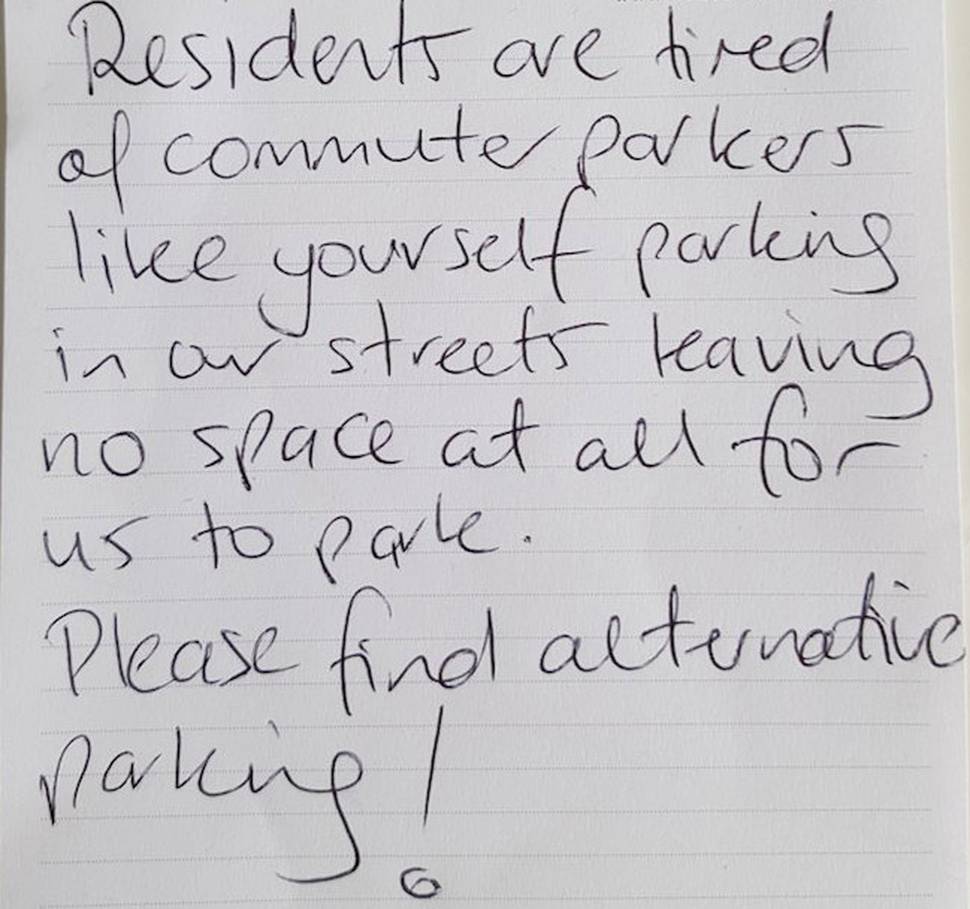 Residents are tired
of commuter parkers
like yourself parking
in our streets leaving
no space at all for
us to park.
Please find alternative
parking!